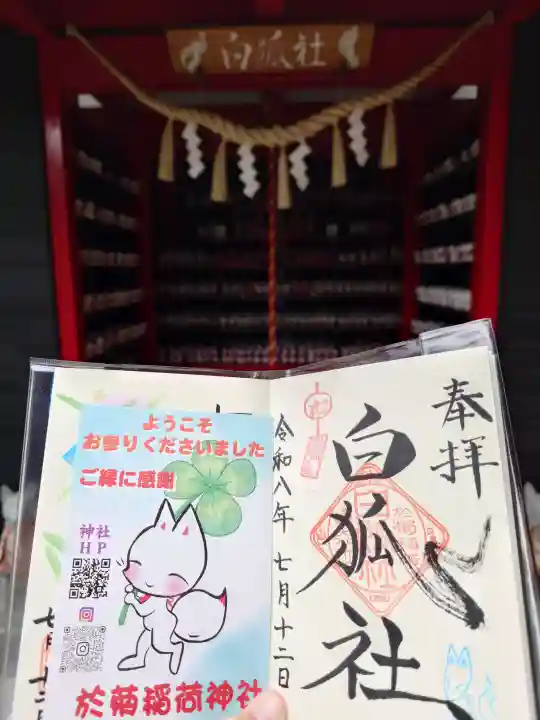 白狐社
ようこそ
お参りくださいました
ご縁に感謝
神社
HP
於菊稲荷神社
奉拝
白狐社
令和八年 七月十二日